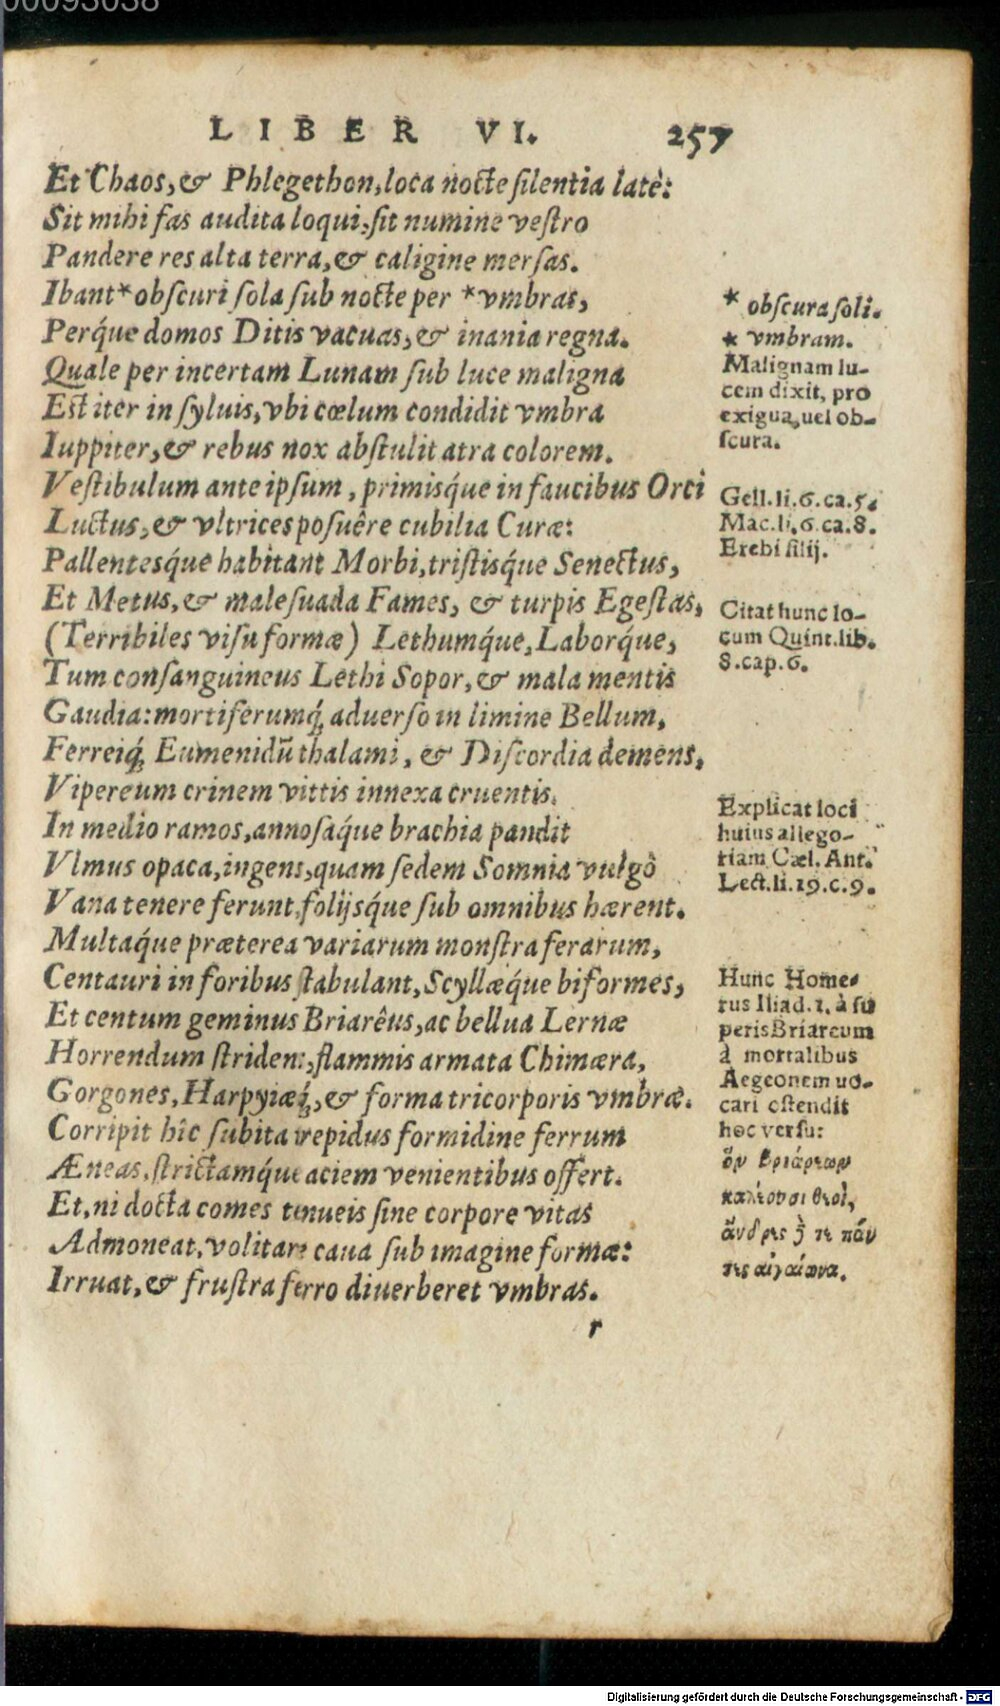 00093038
LIBER VI. 257
Et Chaos, & Phlegethon, loca nocte silentia latè:
Sit mihi fas audita loqui: sit numine vestro
Pandere res alta terra, & caligine mersas.
Ibant * obscuri sola sub nocte per * vmbras,
Perq́ue domos Ditis vacuas, & inania regna.
Quale per incertam Lunam sub luce maligna
Est iter in syluis, vbi cœlum condidit vmbra
Iuppiter, & rebus nox abstulit atra colorem.
Vestibulum ante ipsum, primisq́ue in faucibus Orci
Luctus, & vltrices posuêre cubilia Curæ:
Pallentesq́ue habitant Morbi, tristisq́ue Senectus,
Et Metus, & malesuada Fames, & turpis Egestas,
(Terribiles visu formæ) Lethumq́ue, Laborq́ue,
Tum consanguineus Lethi Sopor, & mala mentis
Gaudia: mortiferumq́; aduerso in limine Bellum,
Ferreiq́; Eumenidũ thalami, & Discordia demens,
Vipereum crinem vittis innexa cruentis.
In medio ramos, annosaq́ue brachia pandit
Vlmus opaca, ingens, quam sedem Somnia vulgò
Vana tenere ferunt, folijsq́ue sub omnibus hærent.
Multaq́ue præterea variarum monstra ferarum,
Centauri in foribus stabulant, Scyllæq́ue biformes,
Et centum geminus Briarêus, ac bellua Lernæ
Horrendum stridens, flammis armata Chimæra,
Gorgones, Harpyiæq́;, & forma tricorporis vmbræ.
Corripit hîc subita trepidus formidine ferrum
Æneas, strictamq́ue aciem venientibus offert.
Et, ni docta comes tenueis sine corpore vitas
Admoneat, volitare caua sub imagine formæ:
Irruat, & frustra ferro diuerberet vmbras.
r
* obscura soli.
* vmbram.
Malignam lu-
cem dixit, pro
exigua, uel ob-
scura.
Gell. li. 6. ca. 5.
Mac. li. 6. ca. 8.
Erebi filij.
Citat hunc lo-
cum Quint. lib.
8. cap. 6.
Explicat loci
huius allego-
riam Cæl. Ant.
Lect. li. 19. c. 9.
Hunc Home-
rus Iliad. 1. à su
peris Briareum
à mortalibus
Aegeonem uo-
cari ostendit
hoc versu:
ὃν βριάρεων
καλέουσι θεοὶ,
ἄνδρες δέ τε πάν
τες αἰγαίωνα.
Digitalisierung gefördert durch die Deutsche Forschungsgemeinschaft - DFG